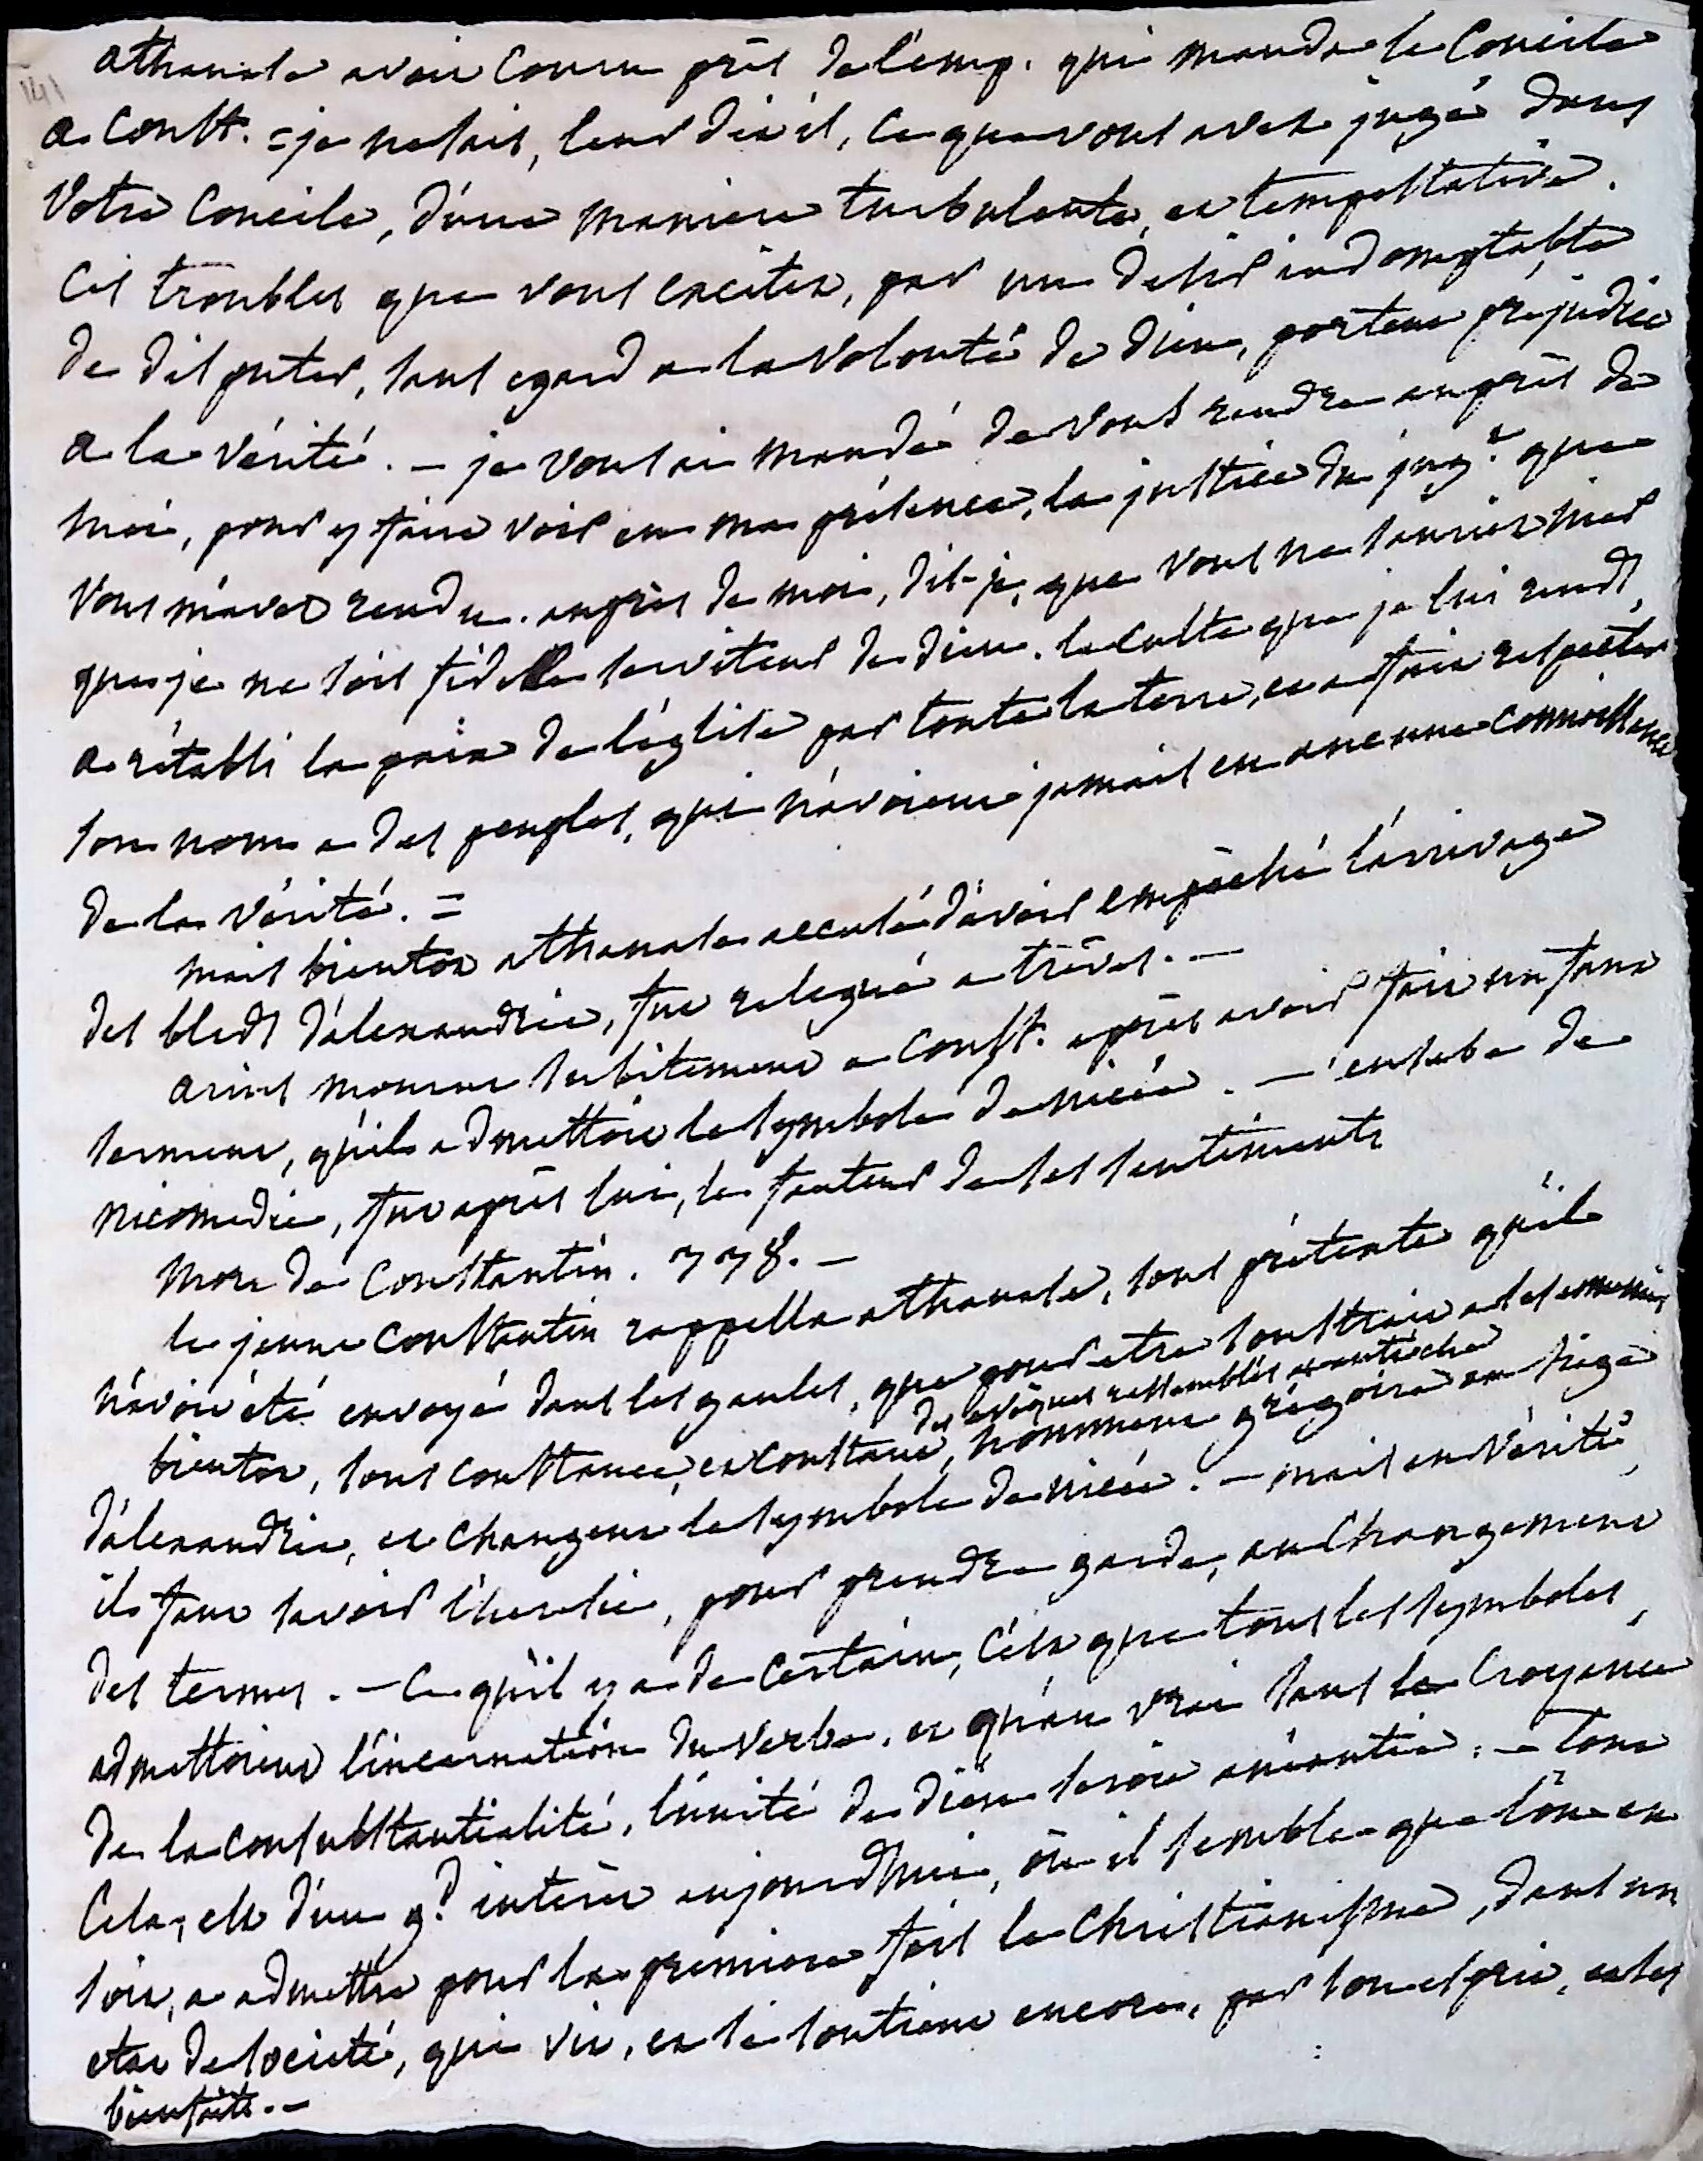 141
athanase avoit couru près de l'emp. qui manda le Concile
a Const. = je ne sais, leur dit il, ce que vous avez jugé dans
votre Concile, d'une maniere turbulente, et tempestative.
Ces troubles que vous excitez, par un desir indomptable
de disputer, sans egard a la volonté de dieu, portent prejudice
a la vérité. — je vous ai mandé de vous rendre auprès de
moi, pour y faire voir en ma présence, la justice du jug.t que
vous m'avez rendu. auprès de moi, dis-je, que vous ne sauriez nier
que je ne sois fidelle serviteur de dieu. le culte que je lui rends,
a rétabli la paix de l'église par toute la terre, et a fait respecter
son nom a des peuples, qui n'avoient jamais eu aucune connoissance
de la vérité. =
mais bientot athanase accusé d'avoir empêché l'arrivage
des bleds d'alexandrie, fut relegué a trèves. —
arius mourut subitement a Const. après avoir fait un faux
serment, qu'il admettoit le symbole de nicée. — eusebe de
nicomedie, fut après lui, le fauteur de ses sentiments
Mort de Constantin. 338. —
le jeune Constantin rappella athanase, sous prétexte qu'il
n'avoit été envoyé dans les gaules, que pour etre soustrait a ses ennemis
des evêques rassemblés a antioche
bientot, sous Constance, et Constant, nomment grégoire au siege
d'alexandrie, et changent le symbole de nicée. — mais en vérité,
il faut savoir l'heresie, pour prendre garde, au changement
des termes. — Ce qu'il y a de certain, c'est que tous les symboles,
admettoient l'incarnation du verbe, et qu'au vrai sans la Croyance
de la consubstantialité, l'unité de dieu seroit anéantie. — Tout
Cela, est d'un g.d intérêt aujourdhui, où il semble que l'on en
soit, a admettre pour la premiere fois le Christianisme, dans un
etat de société, qui vit, et se soutient encore, par son esprit, et ses
bienfaits. —